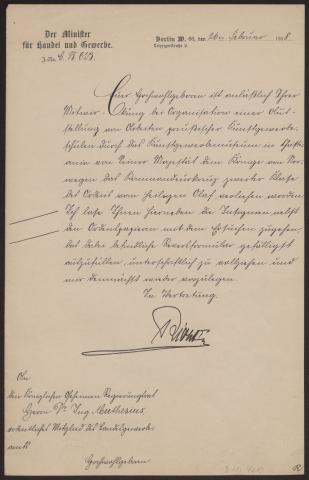 Der Minister
für Handel und Gewerbe.
Berlin W. 66, den 26ten Februar 1908.
Leipzigerstraße 2.
J.-No.
Euer Hochwohlgeboren ist anläßlich Ihrer
Mitwirkung bei Organisation einer Aus-
stellung von Arbeiten preußischer Kunstgewerbe-
schulen durch das Kunstgewerbemuseum in Christi-
ania von Seiner Majestät dem Könige von Nor-
wegen das Kommandeurkreuz zweiter Klasse
des Ordens vom Heiligen Olaf verliehen worden.
Ich lasse Ihnen hierneben die Insignien nebst
den Ordenspapieren mit dem Ersuchen zugehen,
das dabei befindliche Reversformular gefälligst
auszufüllen, unterschriftlich zu vollziehen und
mir demnächst wieder vorzulegen.
In Vertretung.
An
den Königlichen Geheimen Regierungsrat
Herrn Dr. Ing. Muthesius,
ordentliches Mitglied des Landesgewerbe-
amts
Hochwohlgeboren.